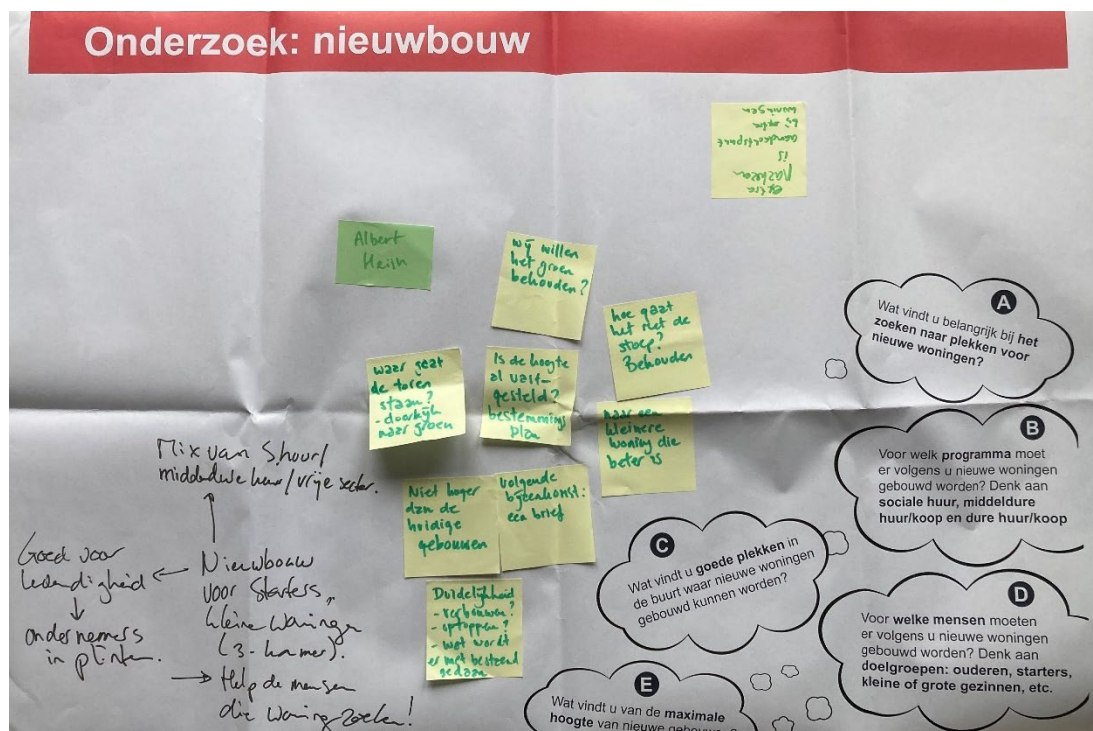 Onderzoek: nieuwbouw
extra
is
aandachtspunt
bij extra
woningen
Albert
Heijn
wij willen
het groen
behouden?
hoe gaat
het met de
stoep?
Behouden
waar gaat
de toren
staan?
- doorkijk
naar groen
Is de hoogte
al vast-
gesteld?
bestemmings
plan
naar een
kleinere
woning die
beter is
Niet hoger
dan de
huidige
gebouwen
volgende
bijeenkomst:
een brief
Duidelijkheid
- verbouwen?
- optoppen?
- wat wordt
er met bestaand
gedaan
Mix van S.huur/
middeldure huur/vrije sector.
Goed voor
levendigheid
ondernemers
in plinten.
Nieuwbouw
voor Starters,
kleine woningen
(3-kamer).
Help de mensen
die woning zoeken!
A
Wat vindt u belangrijk bij het
zoeken naar plekken voor
nieuwe woningen?
B
Voor welk programma moet
er volgens u nieuwe woningen
gebouwd worden? Denk aan
sociale huur, middeldure
huur/koop en dure huur/koop
C
Wat vindt u goede plekken in
de buurt waar nieuwe woningen
gebouwd kunnen worden?
D
Voor welke mensen moeten
er volgens u nieuwe woningen
gebouwd worden? Denk aan
doelgroepen: ouderen, starters,
kleine of grote gezinnen, etc.
E
Wat vindt u van de maximale
hoogte van nieuwe